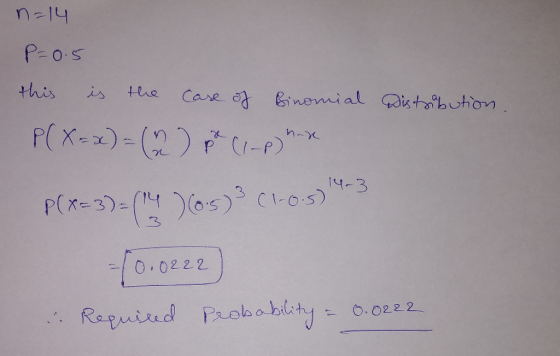 n=14
P=0.5
this is the case of Binomial Distribution.
P(X=x)=(n x) p^x (1-p)^n-x
P(X=3)=(14 3)(0.5)^3 (1-0.5)^14-3
=0.0222
∴ Required Probability = 0.0222